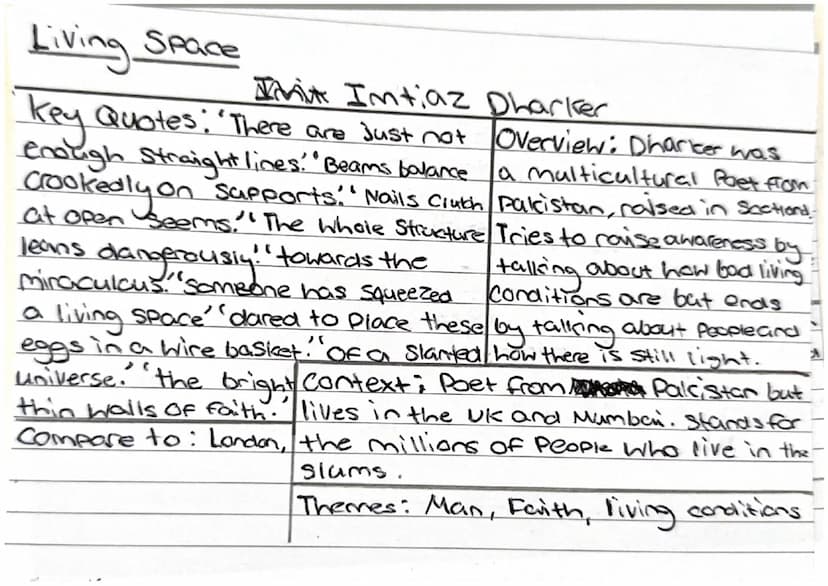 Living Space
Imtiaz Dharker
Key Quotes: 'There are just not
enough straight lines.' 'Beams balance
crookedly on supports.' 'Nails clutch
at open seems.' 'The whole structure
leans dangerously.' 'towards the
miraculous.' 'someone has squeezed
a living space' 'dared to place these
eggs in a wire basket.' 'of a slanted
universe.' 'the bright
thin walls of faith.'
Compare to: London,
Overview: Dharker was
a multicultural poet from
Pakistan, raised in Scotland.
Tries to raise awareness by
talking about how bad living
conditions are but ends
by talking about people and
how there is still light.
Context: Poet from Pakistan but
lives in the UK and Mumbai. Stands for
the millions of people who live in the
slums.
Themes: Man, Faith, living conditions